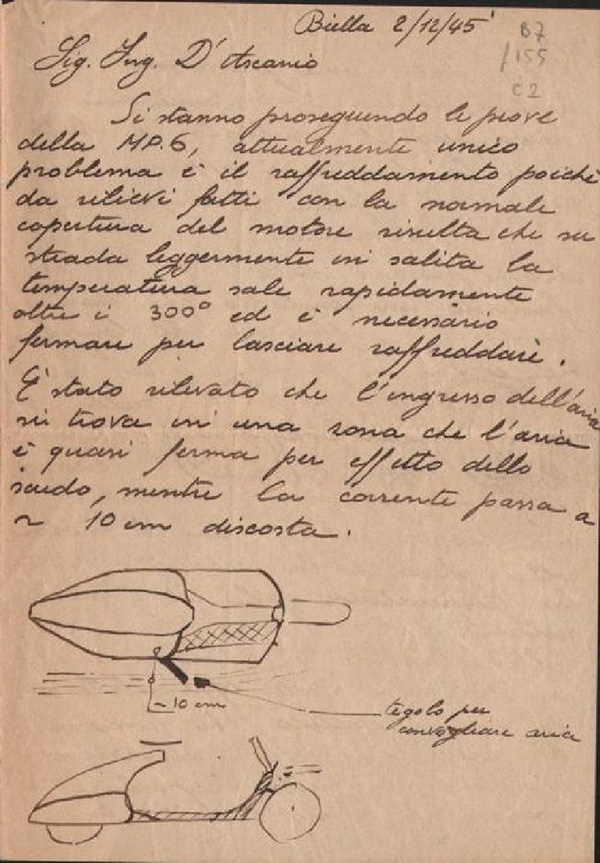 Biella 2/12/45
B7
/155
C2
Sig. Ing. D'Ascanio
Si stanno proseguendo le prove
della MP.6, attualmente unico
problema è il raffreddamento poichè
da rilievi fatti con la normale
copertura del motore risulta che su
strada leggermente in salita la
temperatura sale rapidamente
oltre i 300° ed è necessario
fermare per lasciare raffreddare.
E' stato rilevato che l'ingresso dell'aria
si trova in una zona che l'aria
è quasi ferma per effetto dello
scudo, mentre la corrente passa a
~ 10 cm discosta.
~10 cm
tegolo per
convogliare aria